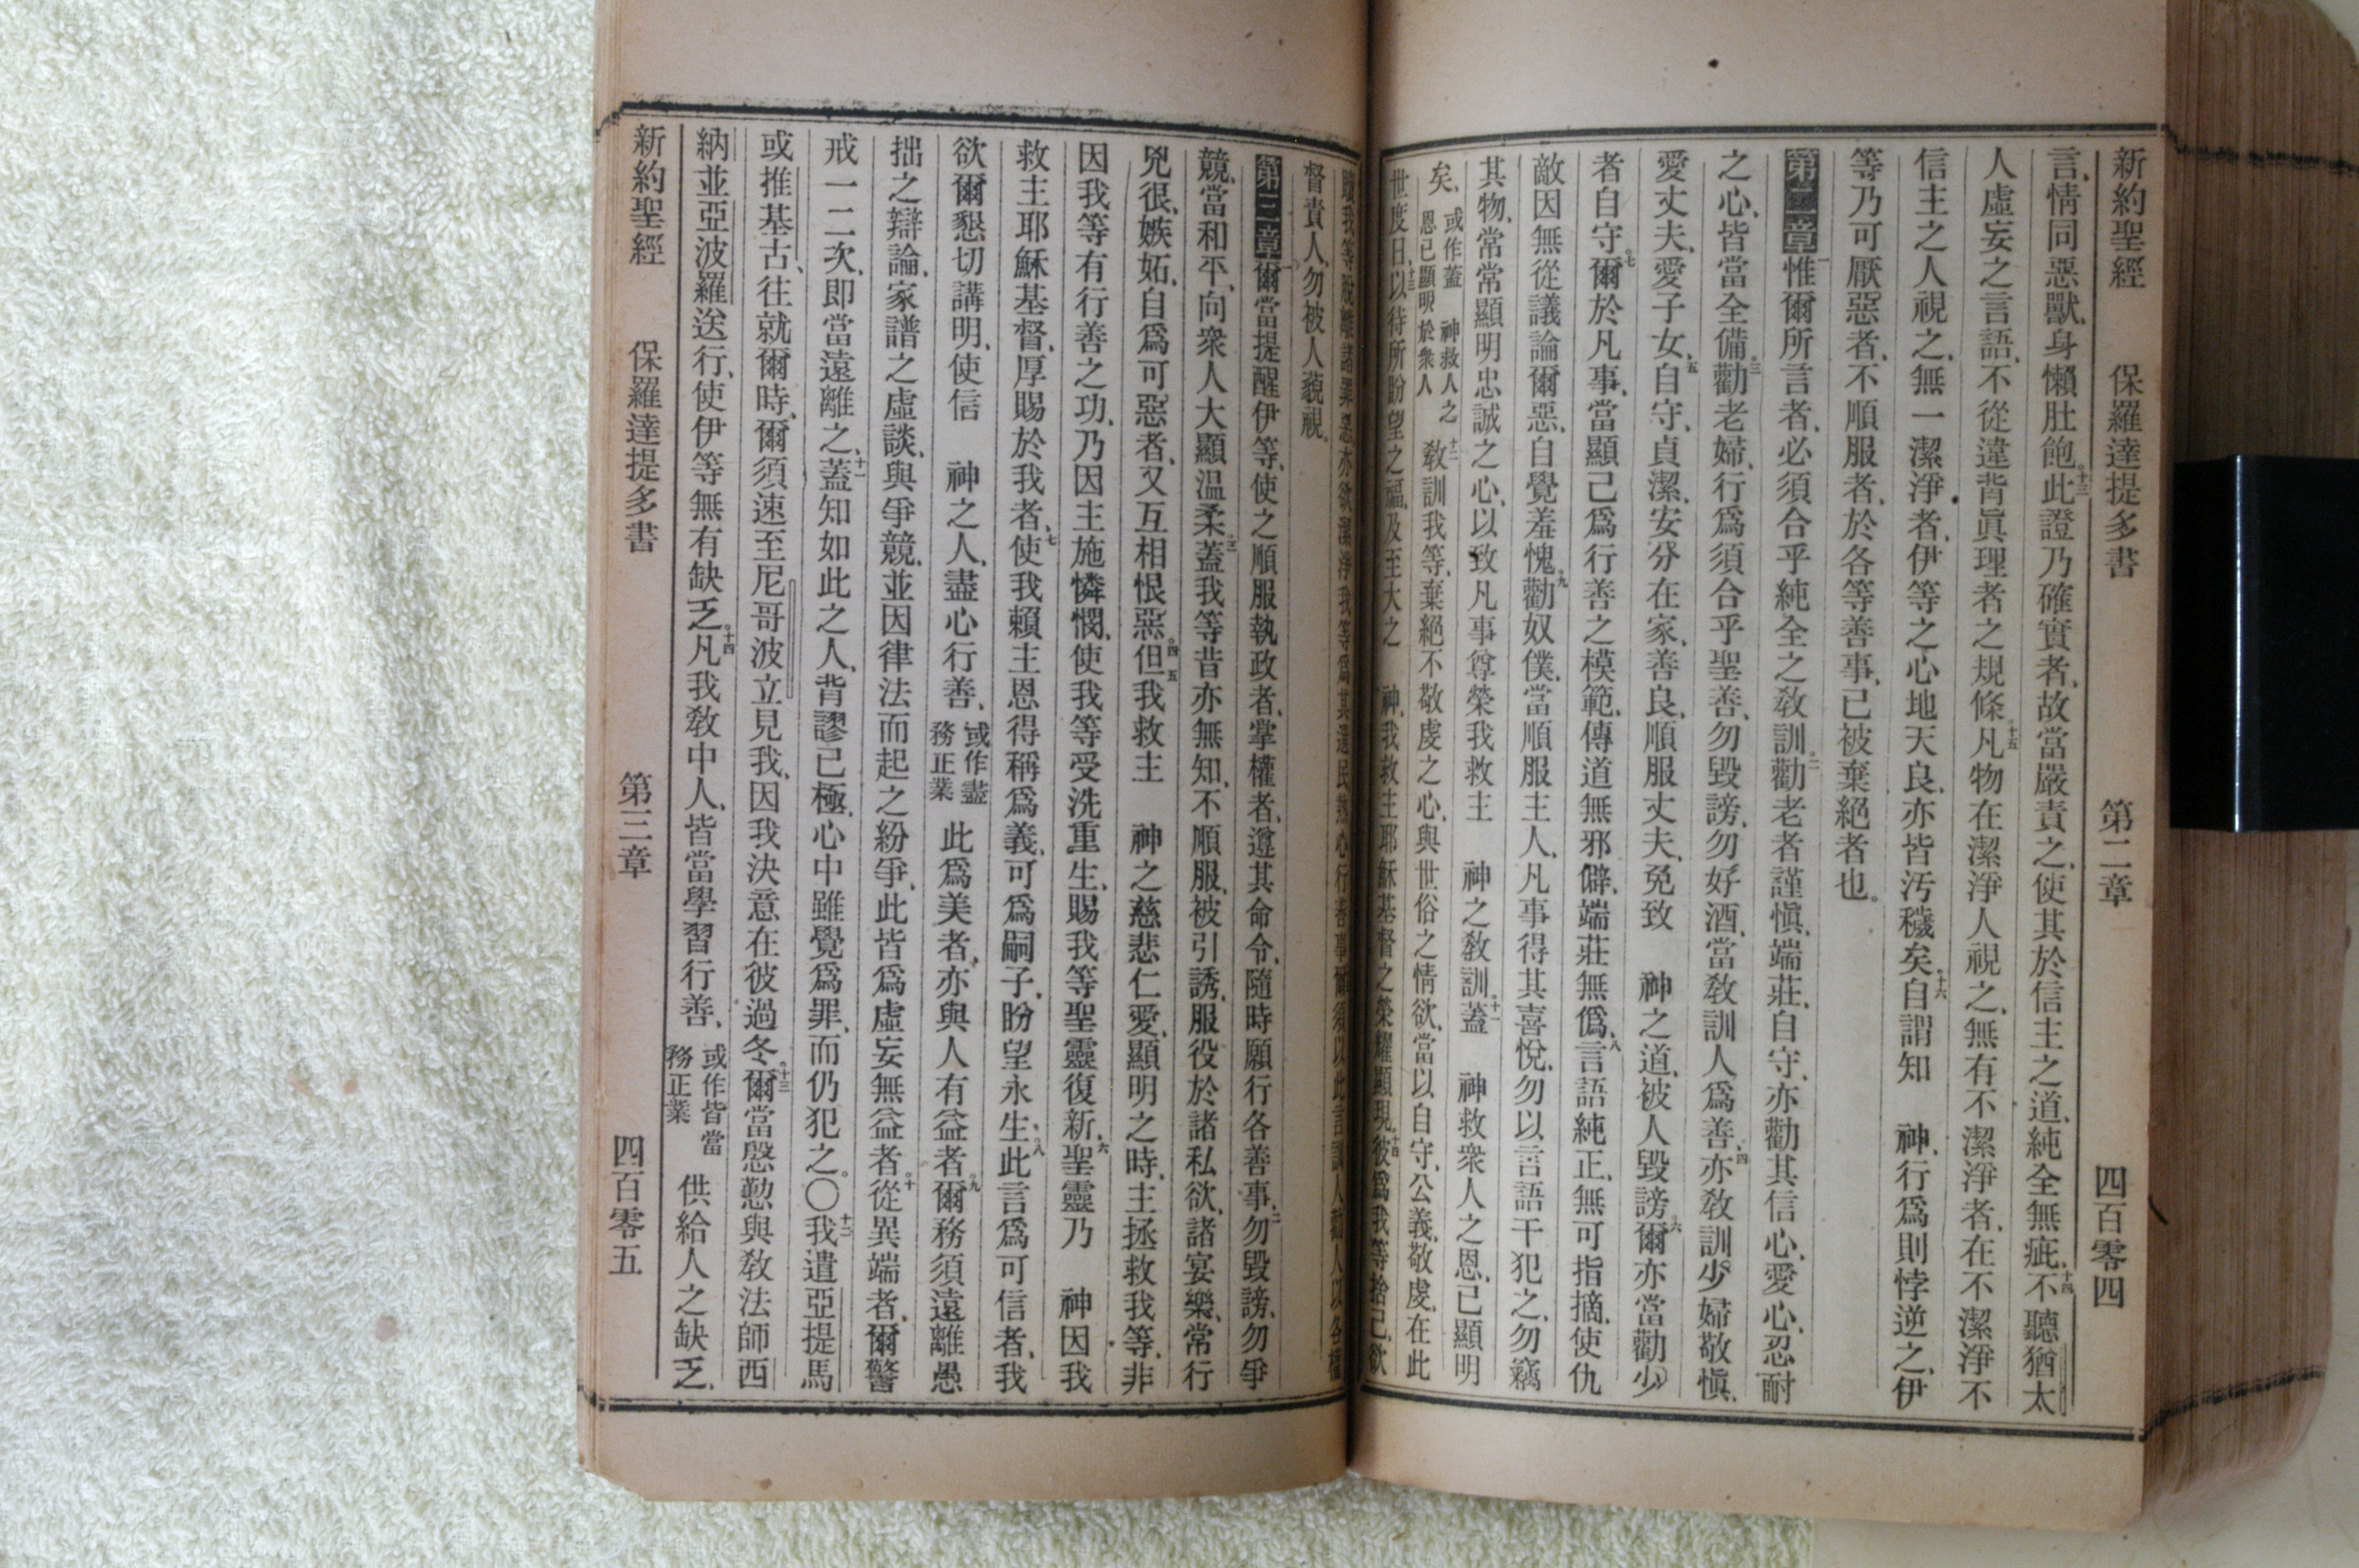 新約聖經 保羅達提多書 第二章 四百零四
言、情同惡獸、身懶肚飽。十三此證乃確實者、故當嚴責之、使其於信主之道、純全無疵、十四不聽猶太
人虛妄之言語、不從違背眞理者之規條。十五凡物在潔淨人視之、無有不潔淨者、在不潔淨不
信主之人視之、無一潔淨者、伊等之心地天良、亦皆汚穢矣。十六自謂知 神、行爲則悖逆之、伊
等乃可厭惡者、不順服者、於各等善事、已被棄絕者也。
第二章 一惟爾所言者、必須合乎純全之敎訓。二勸老者謹愼、端莊、自守、亦勸其信心、愛心、忍耐
之心、皆當全備。三勸老婦、行爲須合乎聖善、勿毀謗、勿好酒、當敎訓人爲善、四亦敎訓少婦敬愼、
愛丈夫、愛子女、五自守、貞潔、安分在家、善良、順服丈夫、免致 神之道、被人毀謗。六爾亦當勸少
者自守。七爾於凡事、當顯己爲行善之模範、傳道無邪僻、端莊無僞、八言語純正、無可指摘、使仇
敵因無從議論爾惡、自覺羞愧。九勸奴僕、當順服主人、凡事得其喜悅、勿以言語干犯之、勿竊
其物、常常顯明忠誠之心、以致凡事尊榮我救主 神之敎訓。十一蓋 神救衆人之恩、已顯明
矣、或作蓋 神救人之恩已顯明於衆人 十二敎訓我等、棄絕不敬虔之心、與世俗之情欲、當以自守、公義、敬虔、在此
世度日、十三以待所盼望之福、及至大之 神、我救主耶穌基督之榮耀顯現。十四彼爲我等捨己、欲
贖我等脫離諸罪惡、亦欲潔淨我等爲其選民、熱心行善事、爾須以此言訓人勸人、以各權
督責人、勿被人藐視。
第三章 爾當提醒伊等、使之順服執政者、掌權者、遵其命令、隨時願行各善事、二勿毀謗、勿爭
競、當和平、向衆人大顯温柔。三蓋我等昔亦無知、不順服、被引誘、服役於諸私欲、諸宴樂、常行
兇很、嫉妬、自爲可惡者、又互相恨惡。四但五我救主 神之慈悲仁愛、顯明之時、主拯救我等、非
因我等有行善之功、乃因主施憐憫、使我等受洗重生、賜我等聖靈復新。六聖靈乃 神因我
救主耶穌基督、厚賜於我者、七使我賴主恩得稱爲義、可爲嗣子、盼望永生。八此言爲可信者、我
欲爾懇切講明、使信 神之人、盡心行善、或作盡務正業 此爲美者、亦與人有益者。九爾務須遠離愚
拙之辯論、家譜之虛談、與爭競、並因律法而起之紛爭、此皆爲虛妄無益者。十從異端者、爾警
戒一二次、即當遠離之、十一蓋知如此之人、背謬已極、心中雖覺爲罪、而仍犯之。〇十二我遣亞提馬
或推基古、往就爾時、爾須速至尼哥波立見我、因我決意在彼過冬。十三爾當慇懃與敎法師西
納並亞波羅送行、使伊等無有缺乏。十四凡我敎中人、皆當學習行善、或作皆當務正業 供給人之缺乏、
新約聖經 保羅達提多書 第三章 四百零五